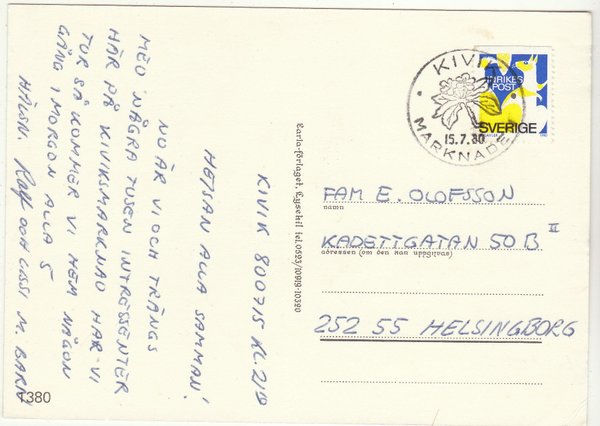 KIVIK 800715 KL. 21⁰
HEJSAN ALLA SAMMAN!
NO ÄR VI OCH TRÄNGS
MED NÅGRA TUSEN INTRESSENTER
HÄR PÅ KIVIKSMARKNAD HAR VI
TUR SÅ KOMMER VI HEM NÅGON
GÅNG I MORGON ALLA 5
HÄLSN. Ralf OCH LISSI M. BARN
1380
Carla-förlaget, Lysekil tel. 0523/10919-10320
KIVIK
MARKNAD
15.7.80
INRIKES
POST
SVERIGE
FAM E. OLOFSSON
namn
KADETTGATAN 50 B II
adressen (om den kan uppgivas)
252 55 HELSINGBORG